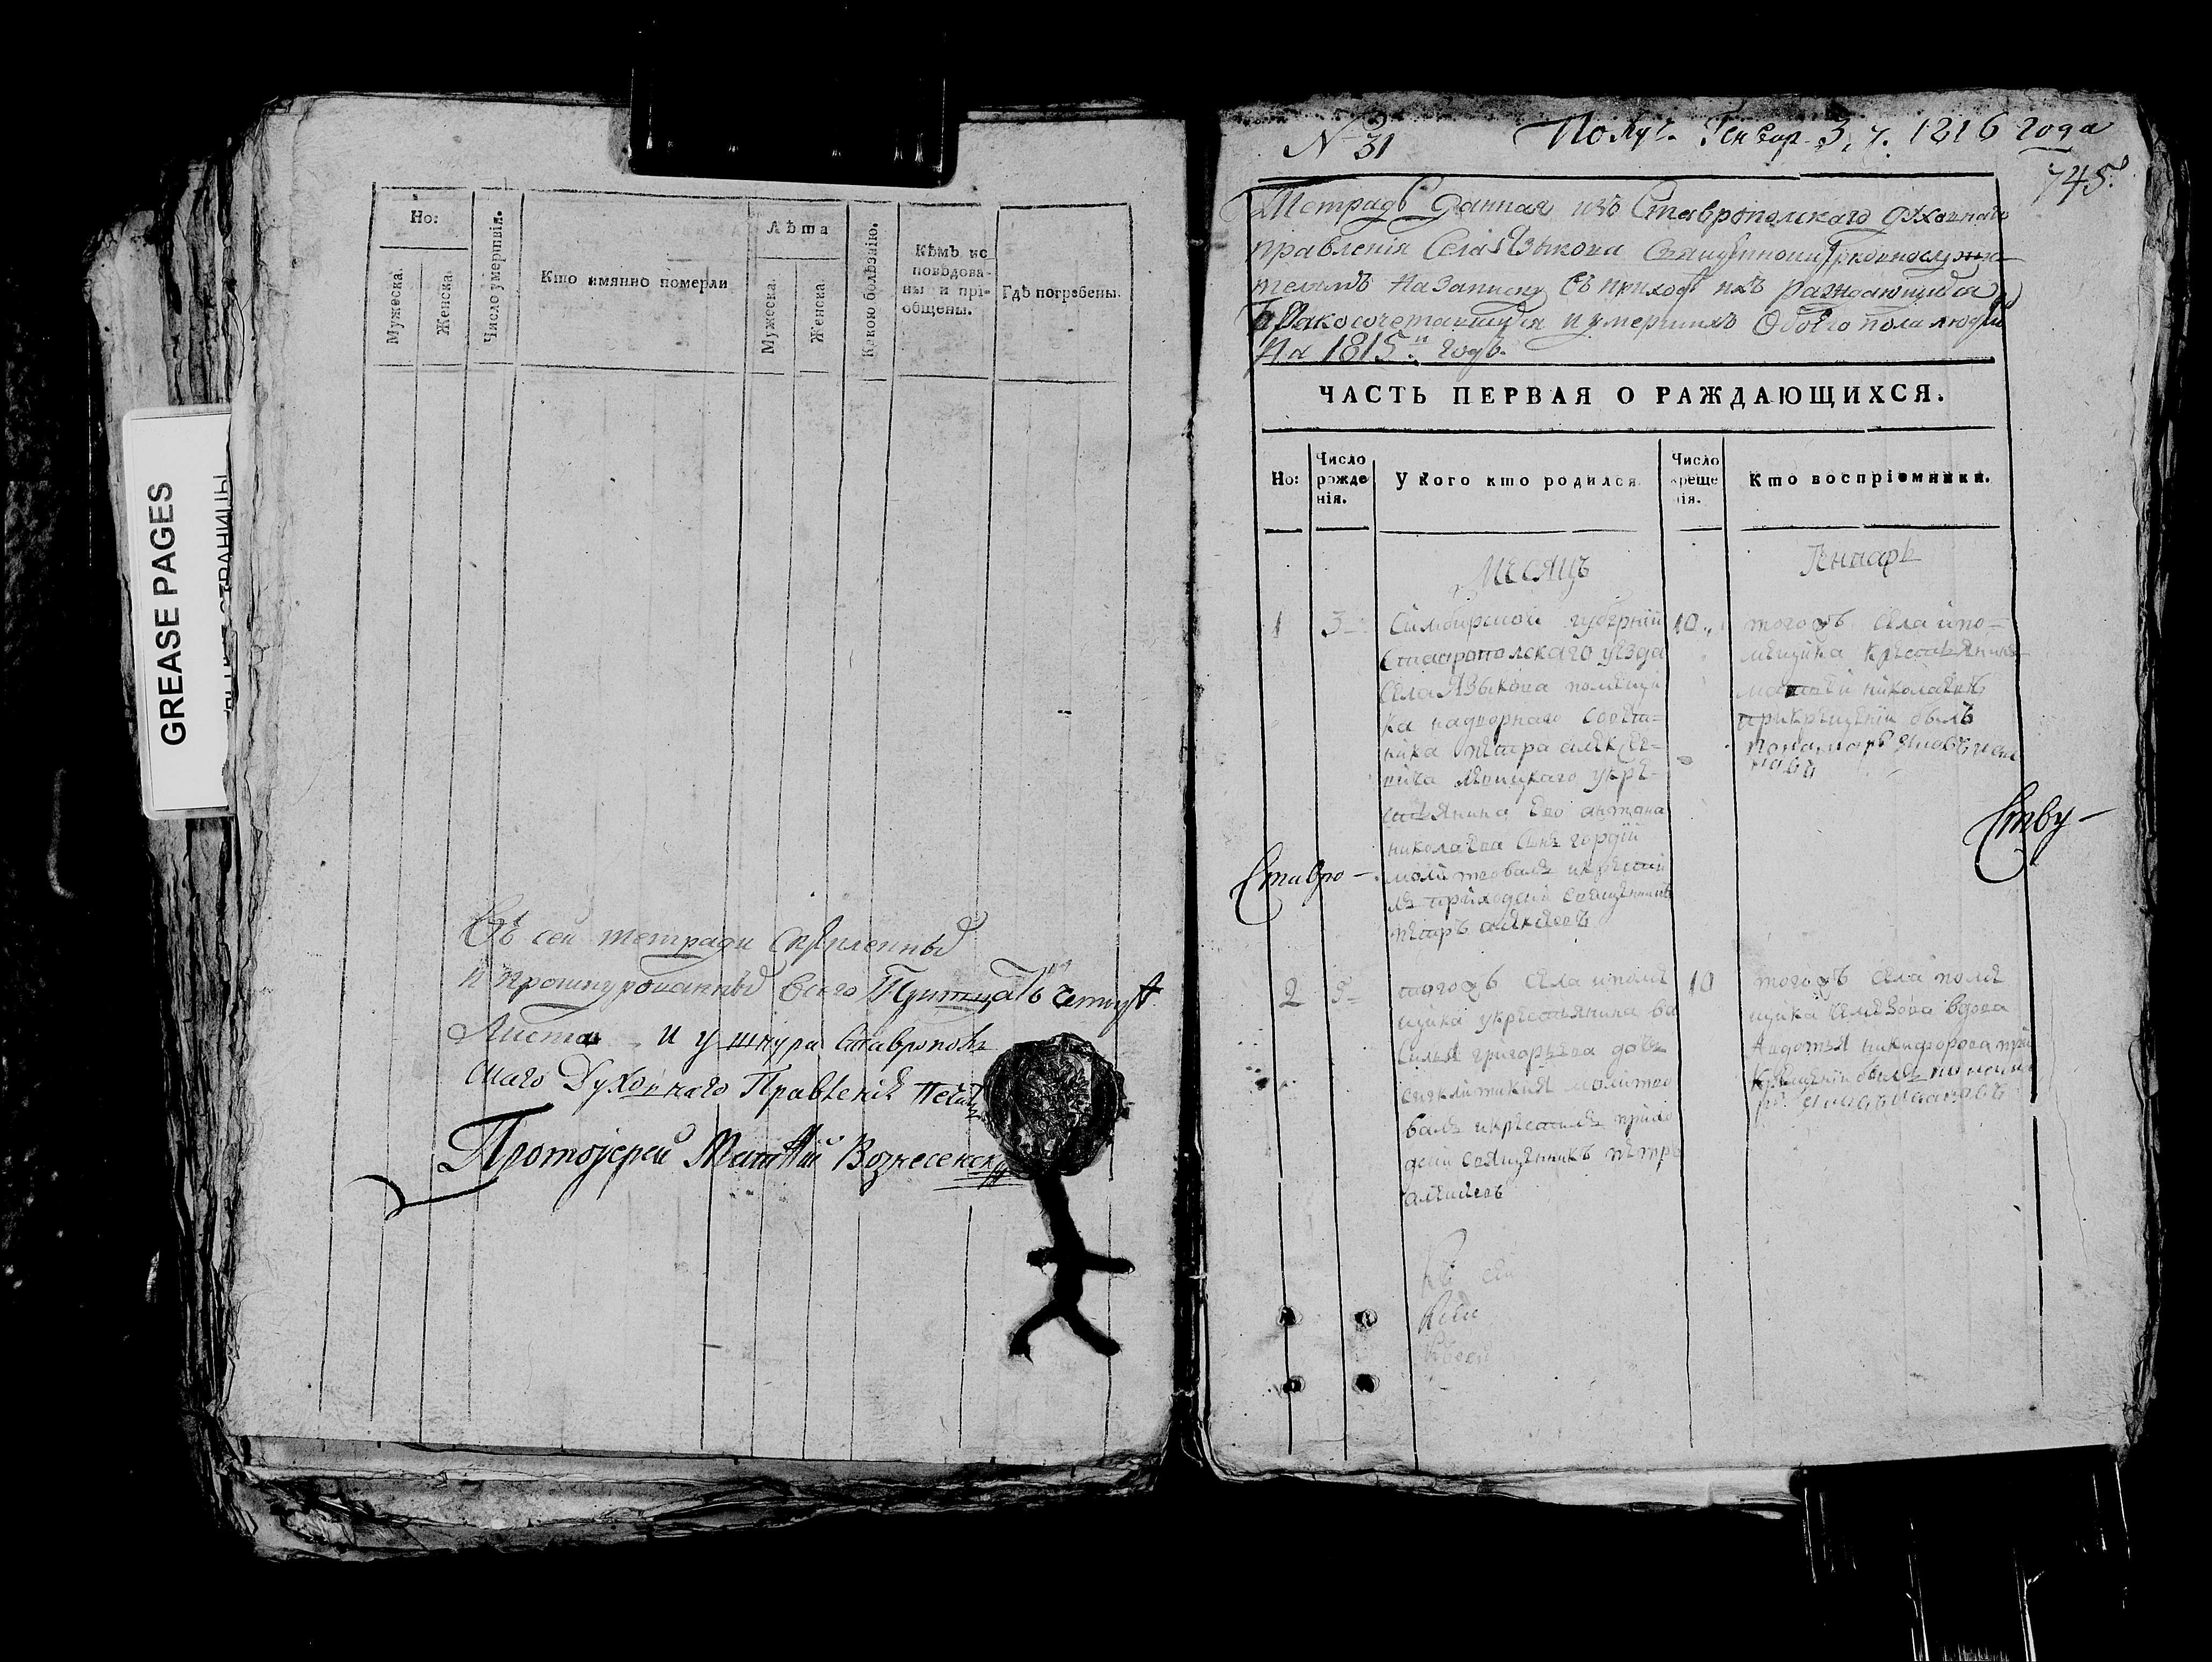 GREASE PAGES
Но:
Мужеска.
Женска.
Число умершвія.
Кто имянно померли
Лѣта
Мужеска.
Женска.
Какою болѣзнію.
Кѣмъ ис
повѣдова-
ны и прі-
общены.
Гдѣ погребены.
Въ сей тетради скрепленныхъ
и прошнурованныхъ всего Тритцать четыре
Листа и у шнура Ставрополь
скаго Духовнаго Правленія печать
Протоіерей Матѳій Вознесенскій
№ 31
Получ. Генвар. 3 ч. 1816 года
745
Тетрадь Данная изъ Ставропольскаго духовнаго
правленія Села Языкова Священноцерковнослужи-
телямъ На Записку въ приходѣ ихъ раждающихся
Бракосочетавшихся и умершихъ Обоего пола людей
На 1815й годъ.
ЧАСТЬ ПЕРВАЯ О РАЖДАЮЩИХСЯ.
Но:
Число
рожде
нія.
У кого кто родился
Число
креще
нія.
Кто воспріемники.
Месяцъ
Генварь
1 3
Симбирской губерніи
Ставропольскаго уезда
Села Языкова помещи
ка надворнаго совет-
ника петра алексее-
вича укре-
стьянина Его антона
николаева сынъ гордей
молитвовалъ и крести
лъ приходский священникъ
петръ алексеевъ
10
тогожъ села и по-
мещика крестьянинъ
матвей николаевъ
при крещении былъ
понамарь
Ставро-
Ству-
2 5
тогожъ села и поме
щика у крестьянина ва
силья григорьева дочь
синклитикия молитво
валъ и крестилъ прихо
дский священникъ петръ
алексеевъ
10
тогожъ села поме
щика вдова
Авдотья никифорова при
крещении былъ